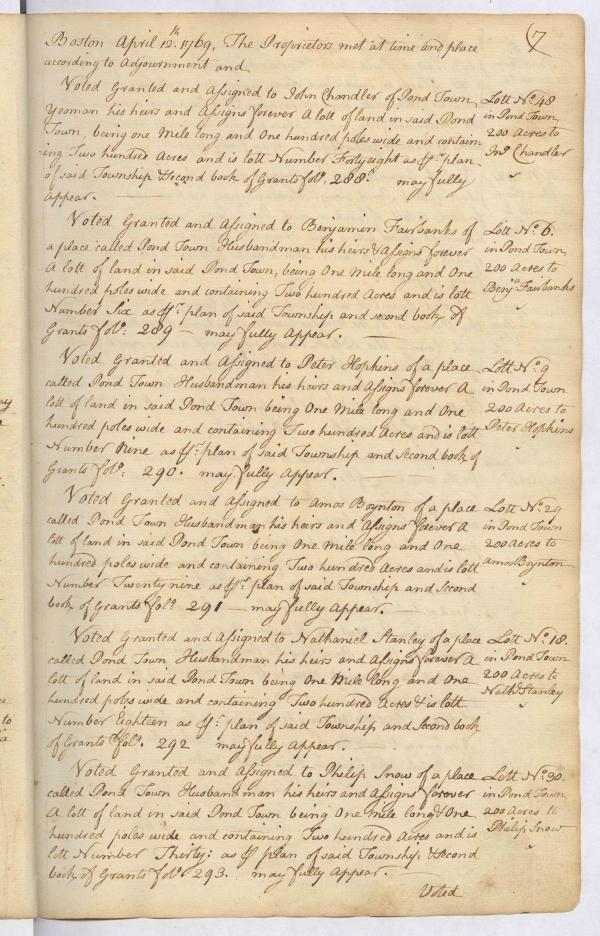 7
Boston April 12th. 1769, The Proprietors met at time and place
according to Adjournment and
Voted Granted and Assigned to John Chandler of Pond Town
Yeoman his heirs and Assigns forever A lott of land in said Pond
Town, being one Mile long and One hundred poles wide and contain
ing Two hundred Acres and is lott Number Forty eight as pr. plan
of said Township & Second book of Grants folo. 288. may fully
appear.
Lott No. 48
in Pond Town
200 Acres to
Jno. Chandler
Voted Granted and Assigned to Benjamin Fairbanks of
a place called Pond Town Husbandman his heirs & Assigns forever
A lott of land in said Pond Town, being One Mile long and One
hundred poles wide and containing Two hundred Acres and is lott
Number Six as pr. plan of said Township and second book of
Grants folo: 289 — may fully Appear. —
Lott No. 6.
in Pond Town,
200 Acres to
Benja. Fairbanks
Voted Granted and Assigned to Peter Hopkins of a place
called Pond Town Husbandman his heirs and Assigns forever A
lott of land in said Pond Town being One Mile long and One
hundred poles wide and containing Two hundred Acres and is lott
Number Nine as pr. plan of said Township and Second book of
Grants folo: 290. may fully Appear.
Lott No. 9
in Pond Town
200 Acres to
Peter Hopkins
Voted Granted and Assigned to Amos Boynton of a place
called Pond Town Husbandman his heirs and Assigns forever A
lott of land in said Pond Town being One Mile long and One
hundred poles wide and containing Two hundred Acres and is lott
Number Twenty nine as pr. plan of said Township and Second
book of Grants folo. 291 — may fully Appear. —
Lott No. 29
in Pond Town
200 Acres to
Amos Boynton
Voted Granted and Assigned to Nathaniel Stanley of a place
called Pond Town Husbandman his heirs and Assigns forever A
lott of land in said Pond Town being One Mile long and One
hundred poles wide and containing Two hundred Acres & is lott
Number Eighteen as pr. plan of said Township and Second book
of Grants folo. 292 may fully Appear. —
Lott No. 18.
in Pond Town
200 Acres to
Nathl. Stanley
Voted Granted and Assigned to Philip Snow of a place
called Pond Town Husbandman his heirs and Assigns forever
A lott of land in said Pond Town being One Mile long & One
hundred poles wide and containing Two hundred Acres and is
lott Number Thirty: as pr plan of said Township & Second
book of Grants folo. 293. may fully Appear. —
Lott No. 30.
in Pond Town
200 Acres to
Philip Snow
Voted